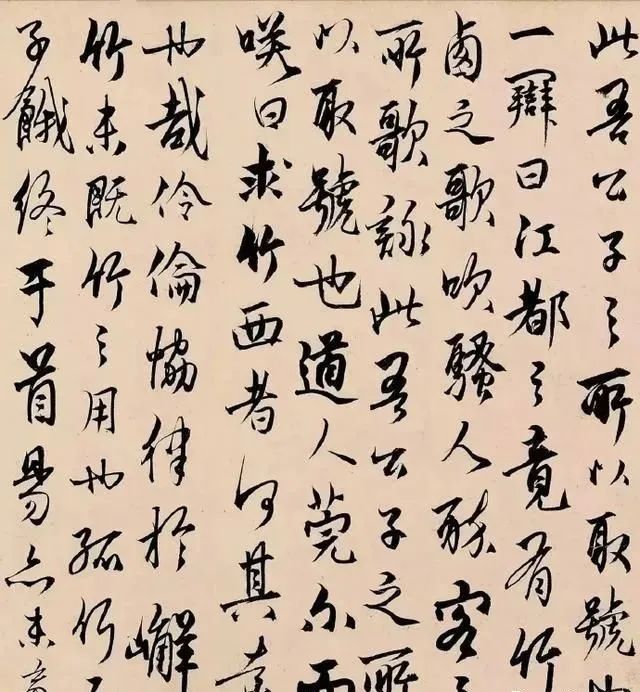 此吾公子之所以取號也
一辯曰江都之竟有竹
鹵之歌吹騷人醉客之
所歌詠此吾公子之所
以取號也道人莞尔而
咲曰求竹西者何其遠
也哉伶倫恊律於嶰
竹未既竹之用也孤竹之
子餓終于首昜亦未盡